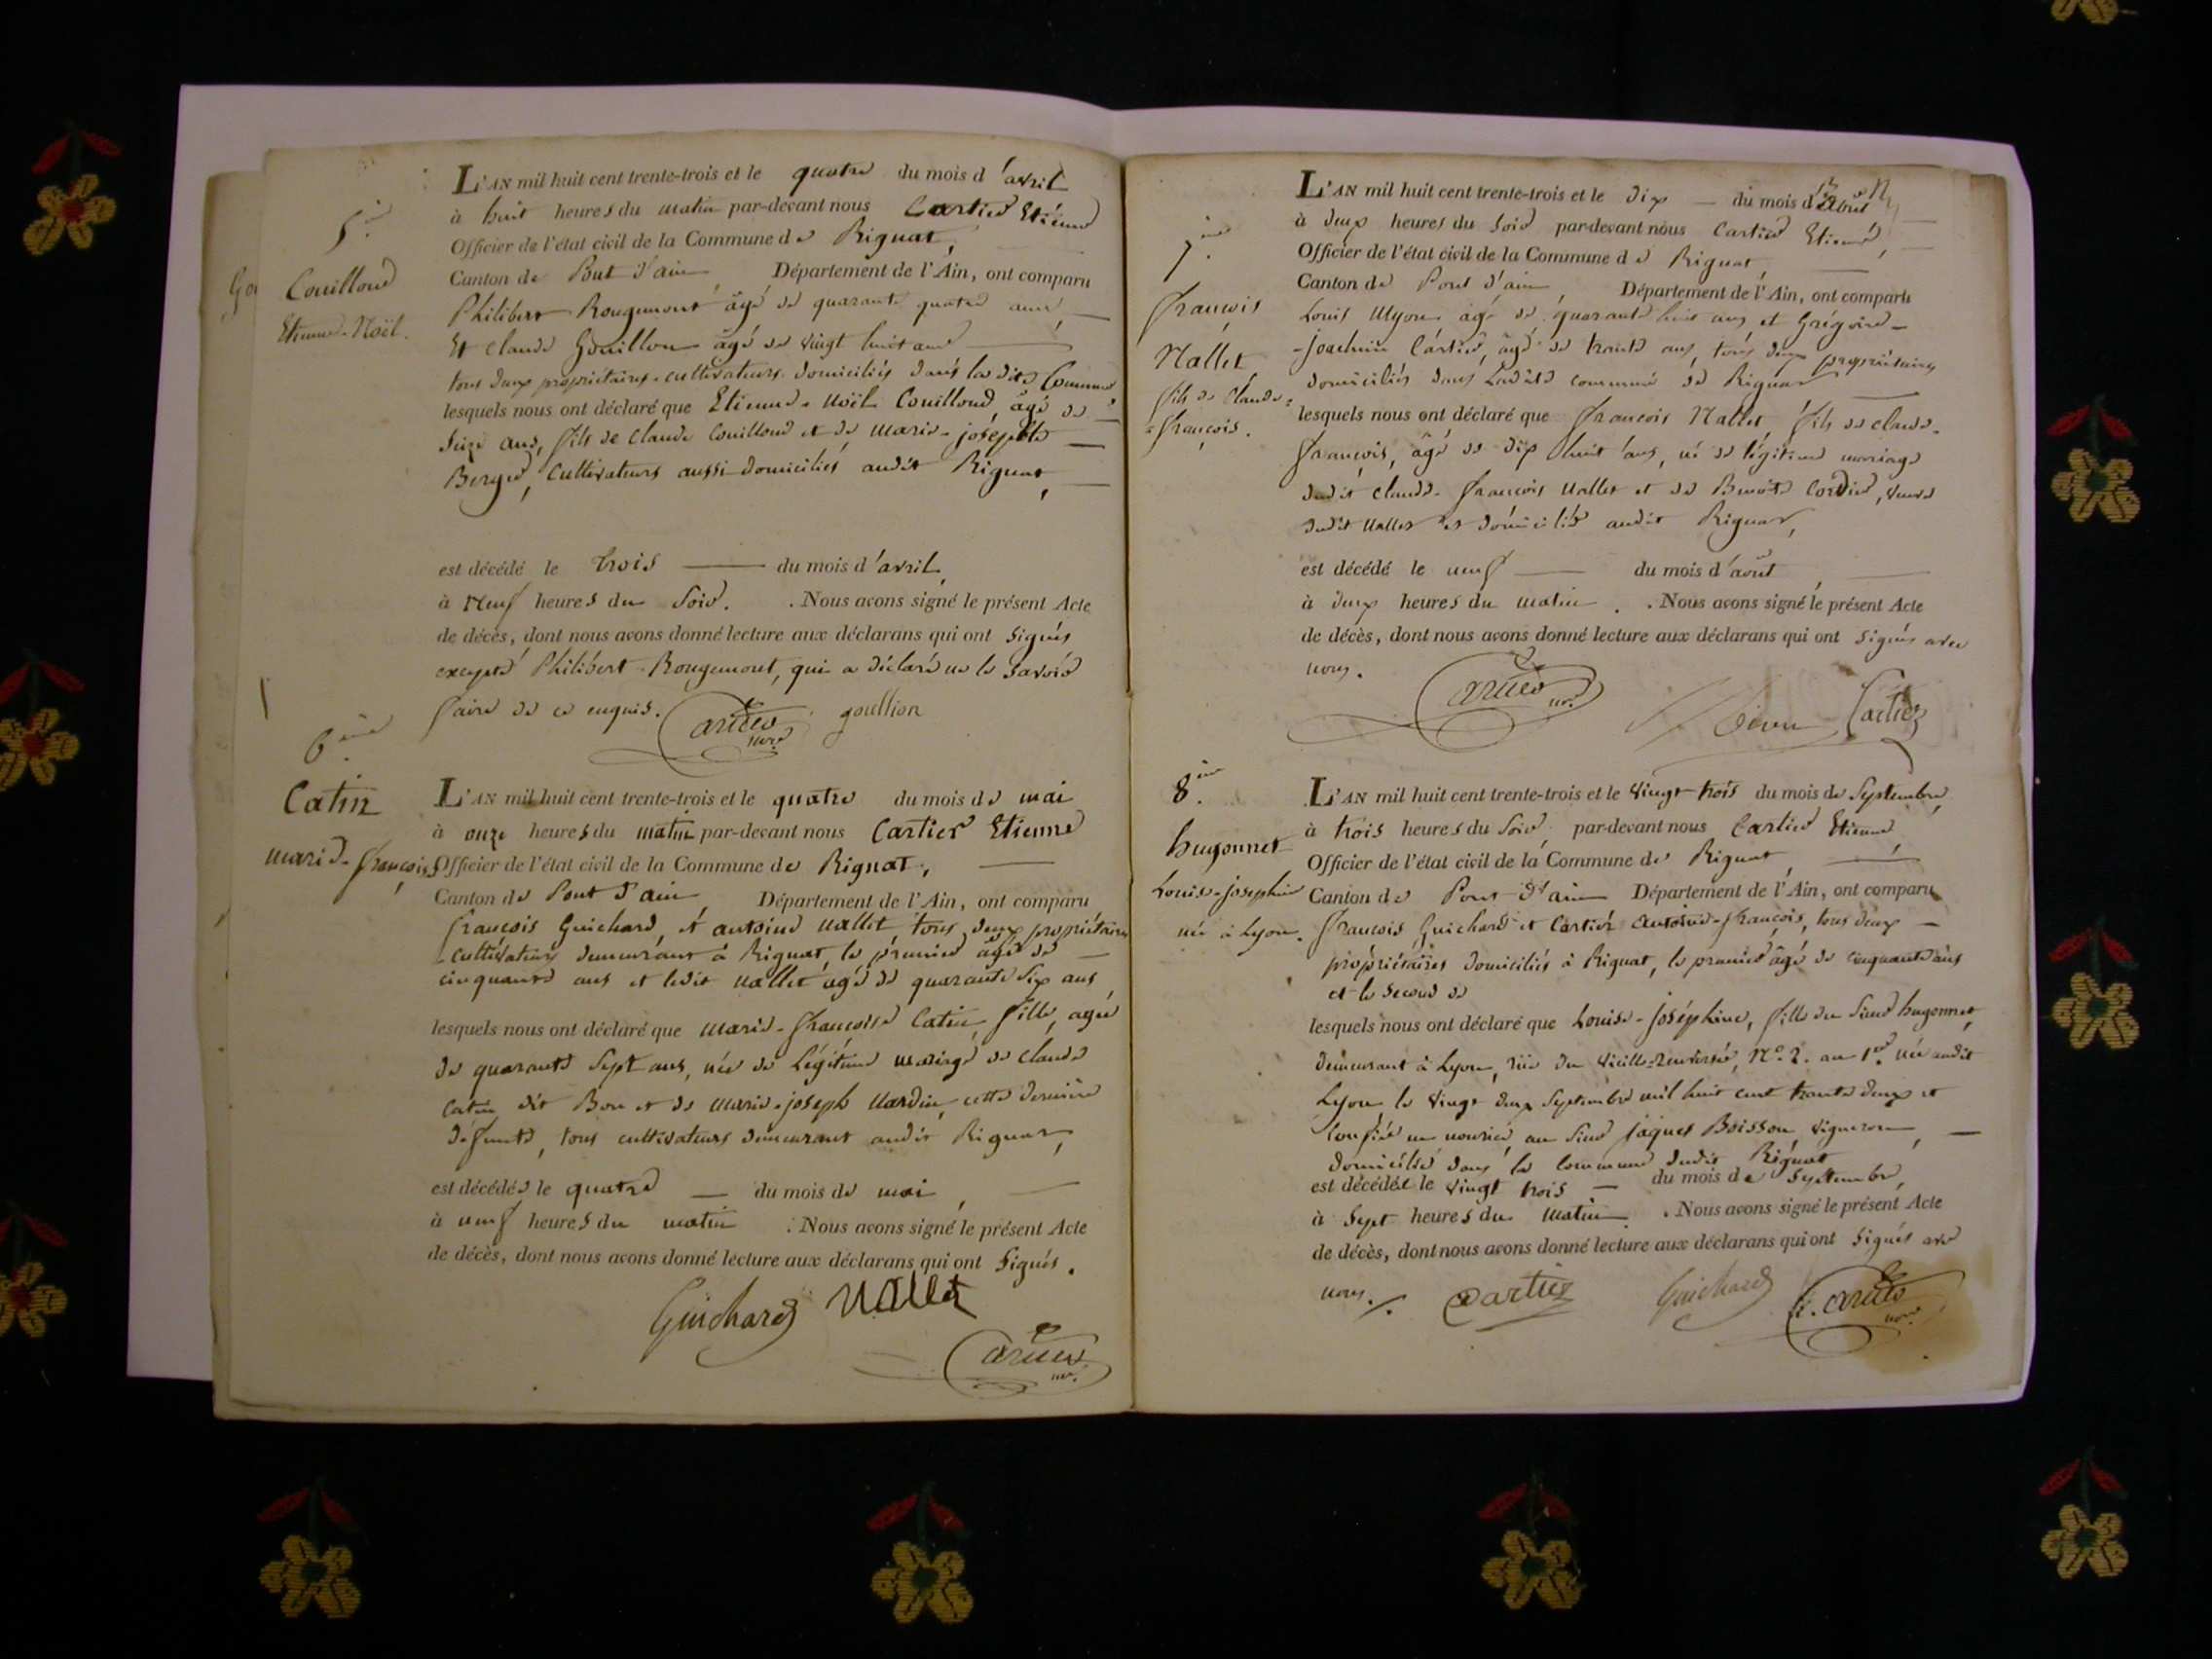 5.e
Couilloud
Etienne-Noël.
L'AN mil huit cent trente-trois et le quatre du mois d'avril
à huit heures du matin par-devant nous Cartier Etienne
Officier de l'état civil de la Commune de Rignat,
Canton de Pont d'ain, Département de l'Ain, ont comparu
Philibert Rougemont âgé de quarante quatre ans,
Et Claude Gouillon âgé de vingt huit ans
tous deux propriétaires-cultivateurs domiciliés dans la dite Commune
lesquels nous ont déclaré que Etienne-Noël Couilloud, âgé de
seize ans, fils de Claude Couilloud et de Marie-josephte
Berger, Cultivateurs aussi domiciliés audit Rignat,
est décédé le trois du mois d'avril,
à Neuf heures du soir. . Nous avons signé le présent Acte
de décès, dont nous avons donné lecture aux déclarans qui ont signés
excepté Philibert Rougemont, qui a déclaré ne le savoir
faire de ce enquis. Cartier goullion
6.ème
Catin
marie-françoise
L'AN mil huit cent trente-trois et le quatre du mois de mai
à onze heures du matin par-devant nous Cartier Etienne
Officier de l'état civil de la Commune de Rignat,
Canton de Pont d'ain, Département de l'Ain, ont comparu
françois Guichard, et antoine Nallet tous deux propriétaires
-cultivateurs demeurant à Rignat, le premier âgé de
cinquante ans et ledit Nallet âgé de quarante six ans
lesquels nous ont déclaré que marie-françoise Catin, fille, agée
de quarante sept ans, née de Légitime mariage de Claude
Catin dit Bon et de marie-joseph Nardin, cette dernière
défunte, tous cultivateurs demeurant audit Rignat,
est décédée le quatre du mois de mai,
à neuf heures du matin . Nous avons signé le présent Acte
de décès, dont nous avons donné lecture aux déclarans qui ont signés.
Guichard Nallet
Cartier
7.ème
françois
Nallet,
fils de Claude-
-françois.
L'AN mil huit cent trente-trois et le dix du mois d'août
à deux heures du soir par-devant nous Cartier Etienne,
Officier de l'état civil de la Commune de Rignat,
Canton de Pont d'ain, Département de l'Ain, ont comparu
Louis âgé de quarante huit ans et Grégoire-
-joachim Cartier, âgé de trente ans, tous deux propriétaires
domiciliés dans Ladite commune de Rignat
lesquels nous ont déclaré que françois Nallet, fils de claude-
françois, âgé de dix huit ans, né de légitime mariage
dudit claude-françois Nallet et de Benoite Cordier, veuve
dudit Nallet et domiciliée audit Rignat,
est décédé le neuf du mois d'août,
à deux heures du matin . . Nous avons signé le présent Acte
de décès, dont nous avons donné lecture aux déclarans qui ont signés avec
nous.
Cartier Cartier
8.ème
hugonnet
Louise-josephine
née à Lyon.
L'AN mil huit cent trente-trois et le vingt-trois du mois de Septembre,
à trois heures du soir, par-devant nous Cartier Etienne,
Officier de l'état civil de la Commune de Rignat,
Canton de Pont d'ain Département de l'Ain, ont comparu
françois Guichard et Cartier antoine-françois, tous deux
propriétaires domiciliés à Rignat, le premier âgé de cinquante ans
et le second de
lesquels nous ont déclaré que Louise-joséphine, fille du sieur hugonnet,
demeurant à Lyon, rüe du vieille-renversée, N.o 2. au 1.er née audit
Lyon le vingt deux Septembre mil huit cent trente deux et
confiée en nourice au sieur jaques Boisson vigneron,
domicilié dans la Commune dudit Rignat
est décédée le vingt trois du mois de Septembre,
à Sept heures du matin . Nous avons signé le présent Acte
de décès, dont nous avons donné lecture aux déclarans qui ont signés avec
nous./. Cartier Guichard E. Cartier